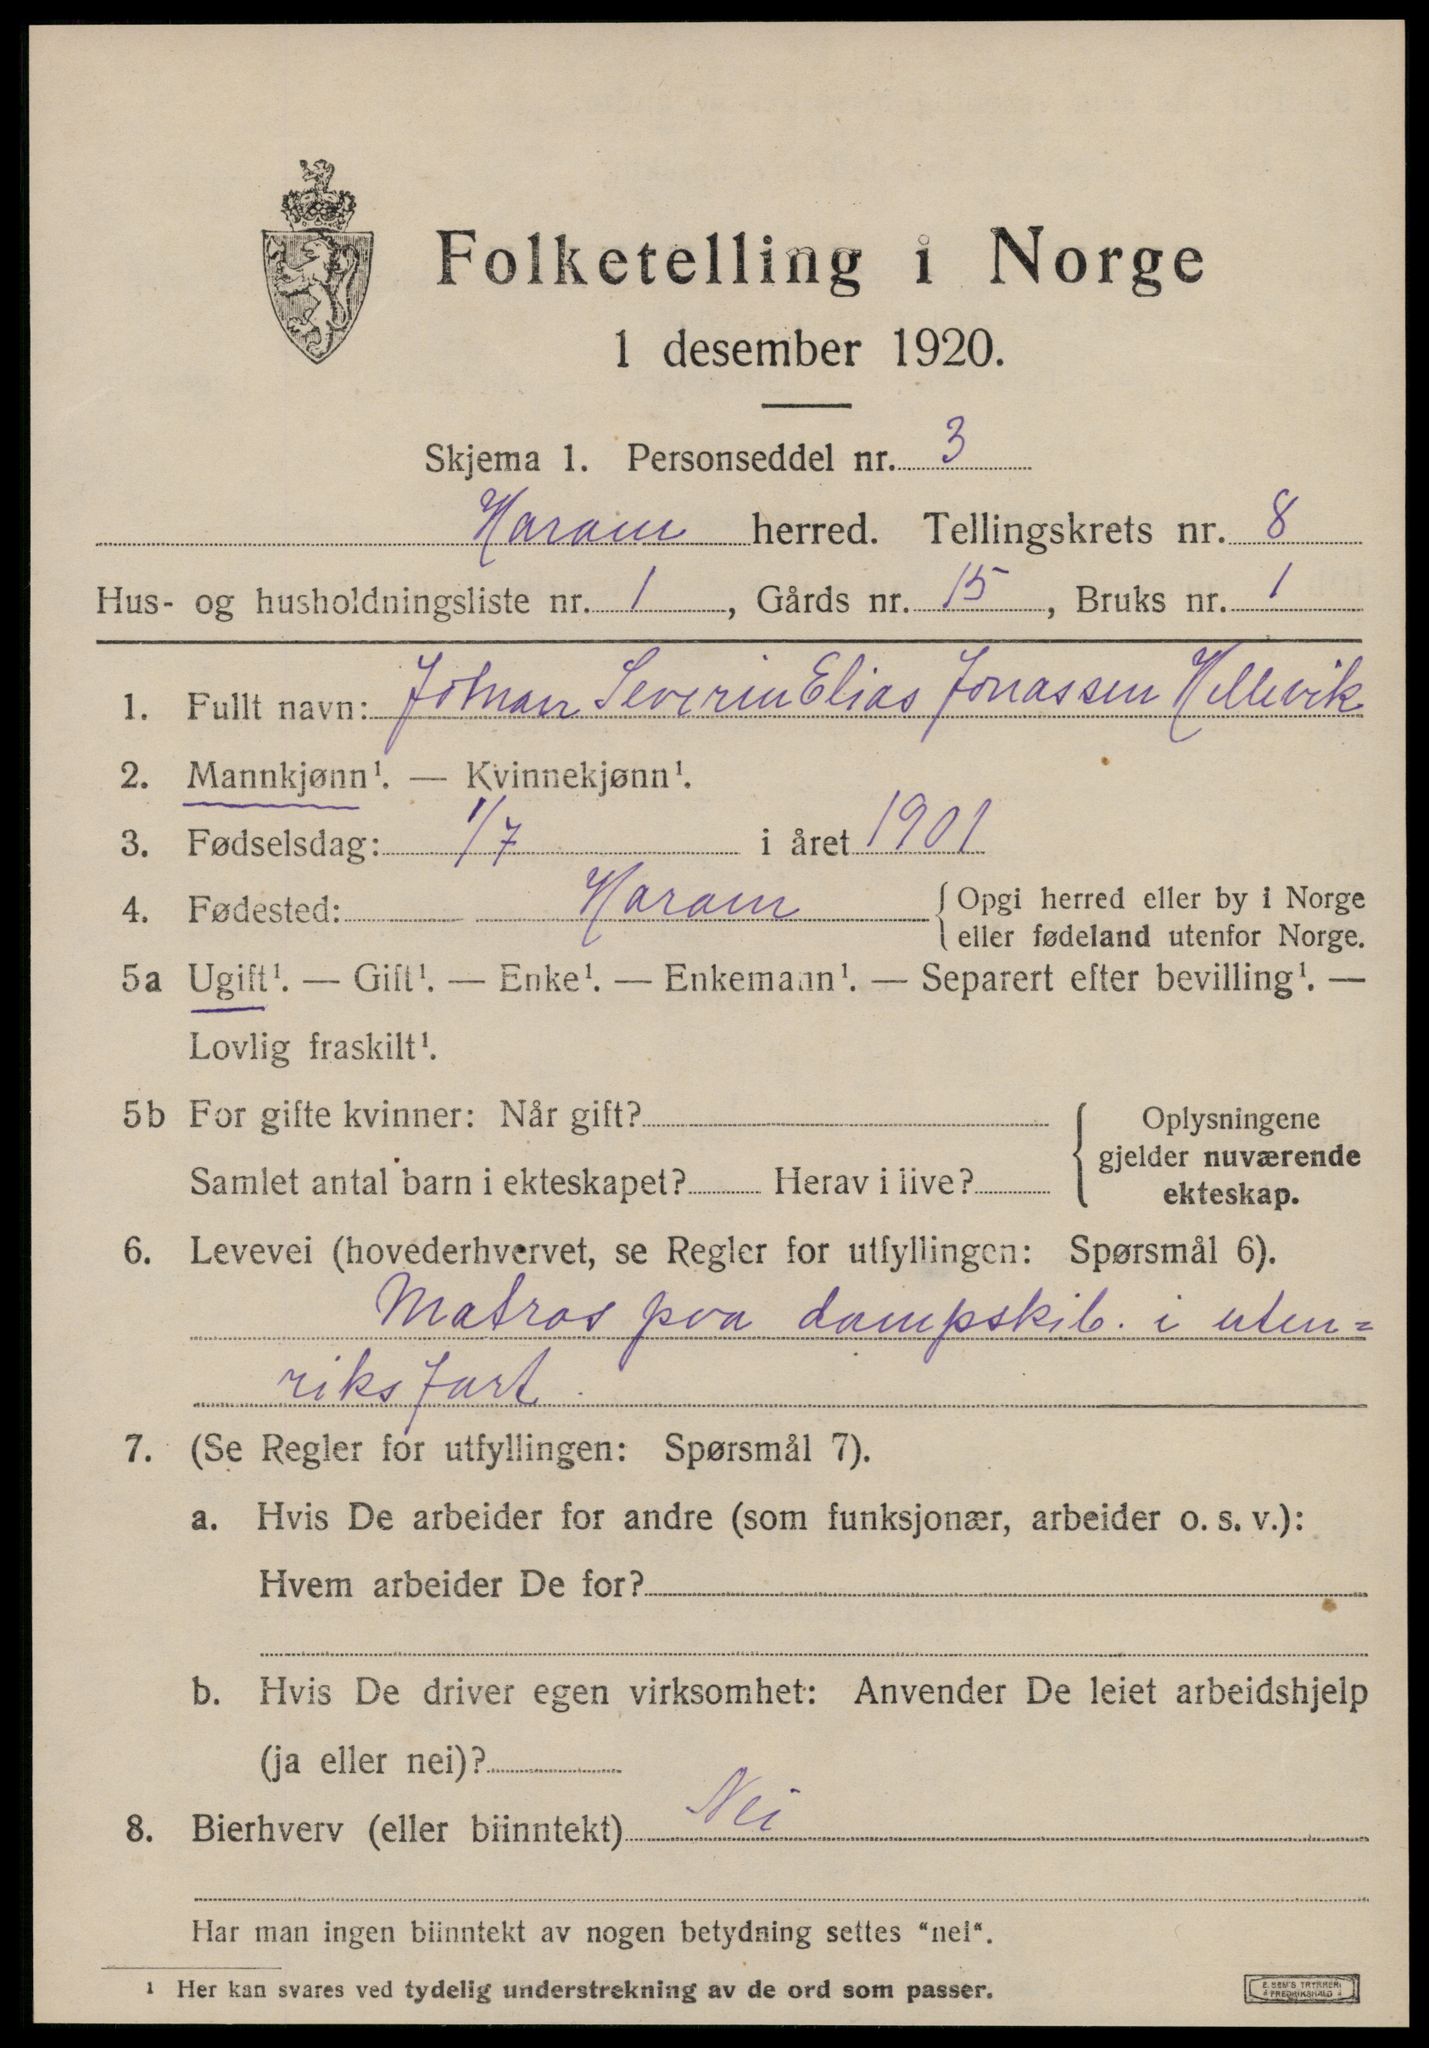 Folketelling i Norge
1 desember 1920.
Skjema 1. Personseddel nr. 3
Haram herred. Tellingskrets nr. 8
Hus- og husholdningsliste nr. 1, Gårds nr. 15, Bruks nr. 1
1. Fullt navn: Johan Severin Elias Jonassen Hellevik
2. Mannkjønn¹. — Kvinnekjønn¹.
3. Fødselsdag: 1/7 i året 1901
4. Fødested: Haram { Opgi herred eller by i Norge
eller fødeland utenfor Norge.
5a Ugift¹. — Gift¹. — Enke¹. — Enkemann¹. — Separert efter bevilling¹. —
Lovlig fraskilt¹.
5b For gifte kvinner: Når gift?
Samlet antal barn i ekteskapet? Herav i live?
Oplysningene
gjelder nuværende
ekteskap.
6. Levevei (hovederhvervet, se Regler for utfyllingen: Spørsmål 6).
Matros paa dampskib. i uten=
riksfart.
7. (Se Regler for utfyllingen: Spørsmål 7).
a. Hvis De arbeider for andre (som funksjonær, arbeider o. s. v.):
Hvem arbeider De for?
b. Hvis De driver egen virksomhet: Anvender De leiet arbeidshjelp
(ja eller nei)?
8. Bierhverv (eller biinntekt) Nei
Har man ingen biinntekt av nogen betydning settes "nei".
¹ Her kan svares ved tydelig understrekning av de ord som passer.
E. SEM'S TRYKKERI
FREDRIKSHALD